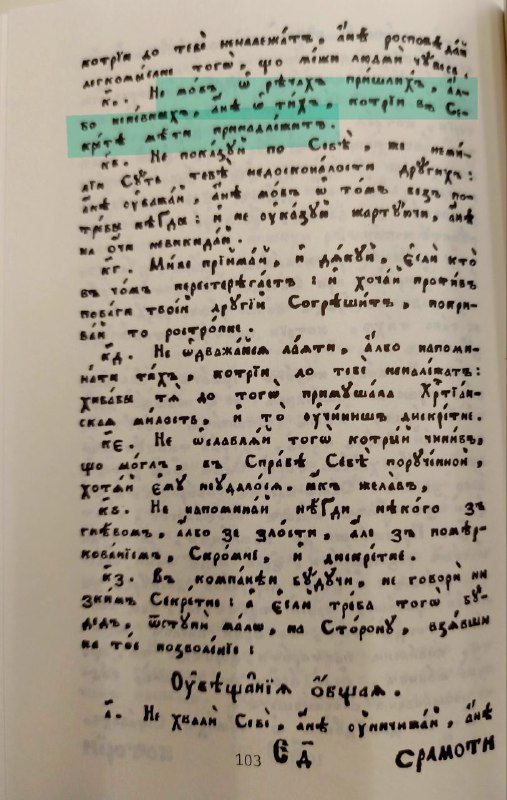 котрїи до тебе неналежатъ, а҆нѣ росповѣдай
легкомысне тогѡ, що межи людми чуешь.
к҃в. Не мовъ ѡ҆ рѣчахъ пришлихъ, а҆л-
бо непевныхъ, а҆нѣ ѡ҆ тихъ, котрїи въ Се-
кретѣ мѣти приналежитъ.
Не показуй по Себѣ, же неми-
лїи Суть тебѣ недосконалости другихъ:
а҆нѣ оуважай, а҆нѣ мовъ ѡ҆ томъ безъ по-
требы нѣгды: и҆ не оуказуй жартуючи, а҆нѣ
на очи невикидай.
к҃г. Миле прїимай, и҆ дякуй, є҆сли кто
въ чомъ перестерегаетъ: и҆ хочай противъ
поваги твоей другїи Согрѣшитъ, покри-
вай то рострόпне.
к҃д. Не ѿдважайся лаяти, а҆лбо напоми-
нати тихъ, котрїи до тебе неналежатъ:
хибабы тя до тогѡ примушала Хр҃тїан-
ская милость, и҆ то оучинишъ дискретне.
к҃є. Не ѡславляй тогѡ котрый чинивъ,
що моглъ, въ Справѣ Себѣ порученной,
хотяй є҆му неудалося. ꙗкъ желавъ,
к҃ѕ. Не напоминай нѣгди нѣкого зъ
гнѣвомъ, а҆лбо зе злости, а҆ле зъ помѣр-
кованїемъ, Скромне, и҆ дискретне.
к҃з. Въ компанѣи будучи, не говори ни
зкимъ Секретне: а҆ є҆сли треба тогѡ бу-
детъ, ѿступи малω, на Сторону, взявши
на тое позволенїе:
Оувѣщанїя ѻбщая.
а҃. Не хвали Себе, а҆нѣ оуничижай, а҆нѣ
103 Є д҃ срамоти